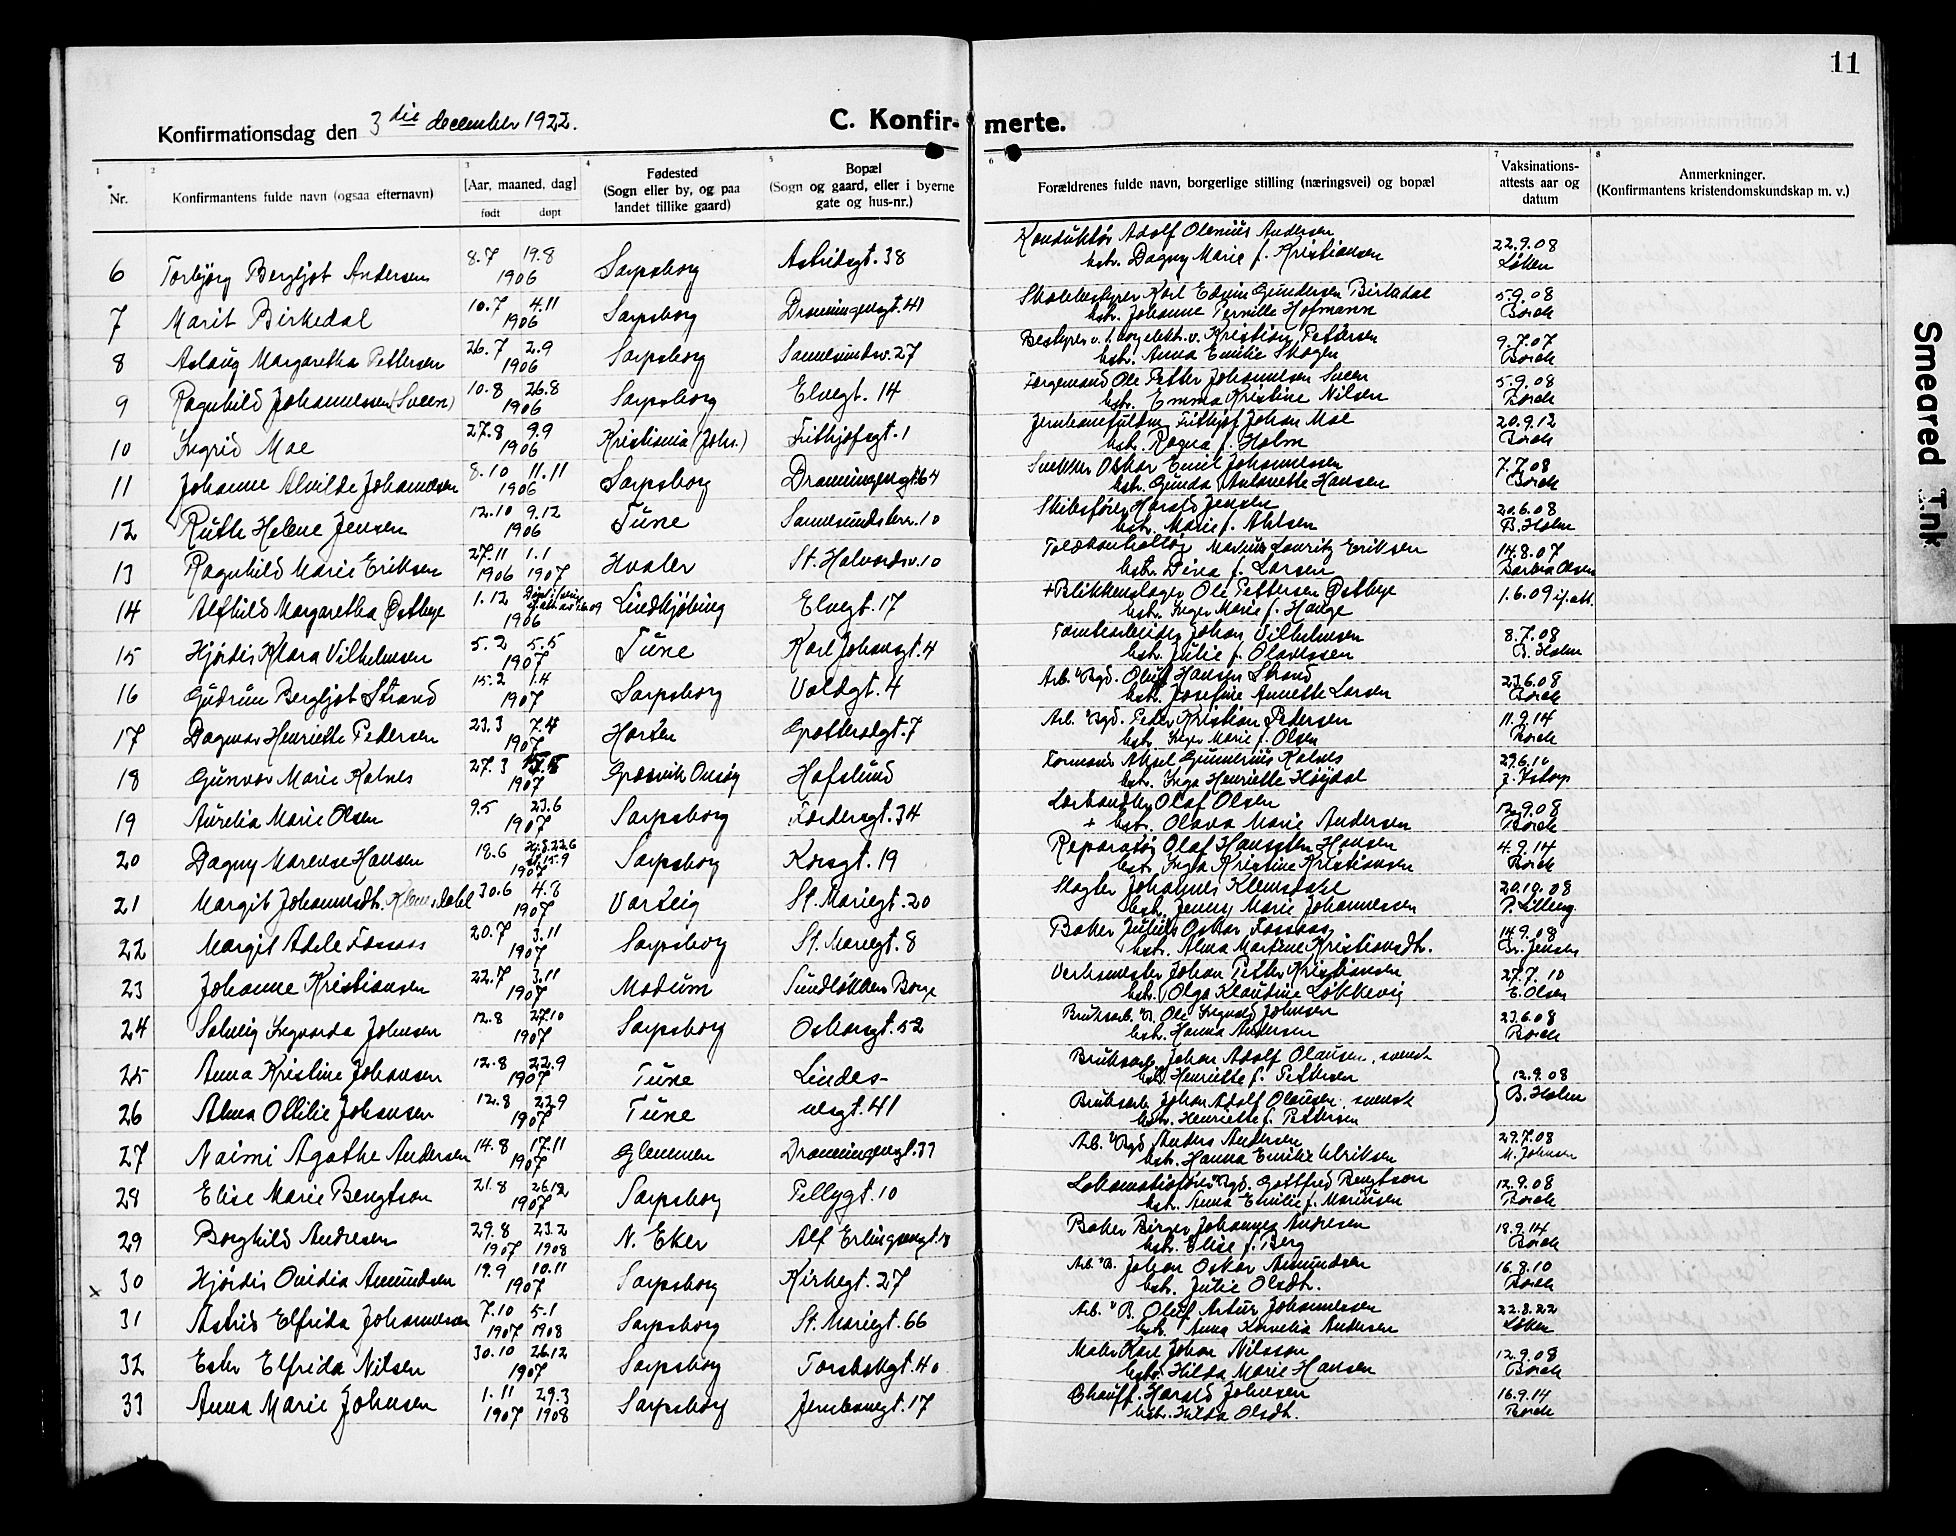 11
Konfirmationsdag den 3die december 1922.
C. Konfir- merte.
1 2 3 4 5 6 7 8
Nr.
Konfirmantens fulde navn (ogsaa efternavn)
[Aar, maaned, dag]
født døpt
Fødested
(Sogn eller by, og paa
landet tillike gaard)
Bopæl
(Sogn og gaard, eller i byerne
gate og hus-nr.)
Forældrenes fulde navn, borgerlige stilling (næringsvei) og bopæl
Vaksinations-
attests aar og
datum
Anmerkninger.
(Konfirmantens kristendomskundskap m. v.)
6 Torbjørg Bergljot Andersen 8.7 19.8 1906 Sarpsborg Astridsgt. 38 Konduktør Adolf Olenius Andersen
hstr. Dagny Marie f. Kristiansen 22.9.08 Løken
7 Marit Birkedal 10.7 4.11 1906 Sarpsborg Dronningensgt. 41 Skolebestyrer Karl Edvin Gundersen Birkedal
hstr. Johanne Pernille Hofmann 5.9.08 Borch
8 Aslaug Margaretha Pettersen 26.7 2.9 1906 Sarpsborg 27 Bestyrer v. Kristian Pettersen
hstr. Anna Emilie Skogen 9.7.07 Borch
9 Ragnhild Johannessen (Sveen) 10.8 26.8 1906 Sarpsborg Elvegt. 14 Ole Petter Johannesen Sveen
hstr. Emma Kristine Nilsen 5.9.08 Borch
10 Ingrid Moe 27.8 9.9 1906 Kristiania (Joh.) Frithjofsgt. 1 Frithjof Johan Moe
hstr. Ragna f. Holm 20.9.12 Borch
11 Johanne Alvilde Johannesen 8.10 11.11 1906 Sarpsborg Dronningensgt. 64 Snekker Oskar Emil Johannessen
hstr. Gunda Antonette Hansen 7.7.08 Borch
12 Ruth Helene Jensen 12.10 9.12 1906 Tune 10 Skibsfører Harald Jensen
hstr. Marie f. Ahlsen 20.6.08 B. Holm
13 Ragnhild Marie Eriksen 27.11 1.1 1906 1907 Hvaler St. Halvardsv. 10 Markus Lauritz Eriksen
hstr. Dina f. Larsen 14.8.07 Barbra Olsen
14 Alfhild Margaretha Østbye 1.12 1906 Lindkjöbing Elvegt. 17 + Blikkenslager Ole Pettersen Østbye
hstr. Inger Marie f. Hauge 1.6.09 if. att.
15 Hjørdis Klara Vilhelmsen 5.2 5.5 1907 Tune Karl Johansgt. 4 Tomtearbeider Johan Vilhelmsen
hstr. Julie f. Olavessen 8.7.08 B. Holm
16 Gudrun Bergljot Strand 15.2 1.4 1907 Sarpsborg Voldgt. 4 Arb. v Bgd. Oluf Hansen Strand
hstr. Josefine Annette Larsen 23.6.08 Borch
17 Dagmar Henriette Pedersen 23.3 7.4 1907 Horten Grotterødgt. 7 Arb. v Bgd. Peder Kristian Pedersen
hstr. Inger Marie f. Olsen 11.9.14 Borch
18 Gunvor Marie Kalnes 27.3 1907 Græsvik Onsøy Hafslund Formand Aksel Gunnerius Kalnes
hstr. Inga Henriette Høydal 29.6.10
19 Aurelia Marie Olsen 9.5 23.6 1907 Sarpsborg 34 Olaf Olsen
+ hstr. Olava Marie Andersen 12.9.08 Borch
20 Dagny Marense Hansen 18.6 15.9 1907 Sarpsborg Korsgt. 19 Reparatør Olaf Hanssen Hansen
hstr. Inga Kristine Kristiansen 4.9.14 Borch
21 Margit Johannesdt. Klemsdahl 30.6 4.8 1907 Varteig St. Mariegt. 20 Slagter Johannes Klemsdahl
hstr. Jenny Marie Johannessen 20.10.08
22 Margit Adele Fossaas 20.7 3.11 1907 Sarpsborg St. Mariegt. 8 Baker Julius Oskar Fossaas
hstr. Alma Martine Kristiansdt. 14.9.08 Jensen
23 Johanne Kristiansen 22.7 3.11 1907 Modum Sundløkken Borge Verksmester Johan Petter Kristiansen
hstr. Olga Klaudine Løkkevig 27.7.10 E. Olsen
24 Solveig Ingvarda Johnsen 12.8 27.10 1907 Sarpsborg Oskarsgt. 52 Bruksarb. v B. Ole Ingvald Johnsen
hstr. Hanna Andersen 23.6.08 Borch
25 Anna Kristine Johansen 12.8 22.9 1907 Tune Lindes- Bruksarb. Johan Adolf Olausen, svensk
hstr. Henriette f. Pettersen 12.9.08
26 Alma Ottilie Johansen 12.8 22.9 1907 Tune nesgt. 41 Bruksarb. Johan Adolf Olausen, svensk
hstr. Henriette f. Pettersen B. Holm
27 Naimi Agathe Andersen 14.8 17.11 1907 Glemmen Dronningensgt. 37 Arb. v Bgd Anders Andersen
hstr. Hanna Emilie Ulriksen 29.7.08 M. Johnsen
28 Elise Marie Bengtson 21.8 26.12 1907 Sarpsborg Pellygt. 10 Lokomotivfører v Bgd. Gottfred Bengtson
hstr. Anna Emilie f. Mariusen 12.9.08 Borch
29 Borghild Andresen 29.8 23.2 1907 1908 N. Eker Alf Erlingsensgt. 18 Baker Birger Johannes Andresen
hstr. Elise f. Berg 18.9.14 Borch
x 30 Hjørdis Ovidia Amundsen 19.9 10.11 1907 Sarpsborg Kirkegt. 27 Arb. v B. Johan Oskar Amundsen
hstr. Julie Olsdt. 16.8.10 Borch
31 Astrid Elfrida Johannessen 7.10 5.1 1907 1908 Sarpsborg St. Mariegt. 66 Arb. v B. Oluf Artur Johannessen
hstr. Anna Kornelia Andersen 22.8.22 Løken
32 Ester Elfrida Nilsen 30.10 26.12 1907 Sarpsborg Torsbekgt. 40 Maler Karl Johan Nilsson
hstr. Hilda Marie Hansen 12.9.08 Borch
33 Anna Marie Johnsen 1.11 29.3 1907 1908 Sarpsborg Jernbanegt. 17 Chauff. Harald Johnsen
hstr. Hilda Olsdt. 16.9.14 Borch
Smeared Ink